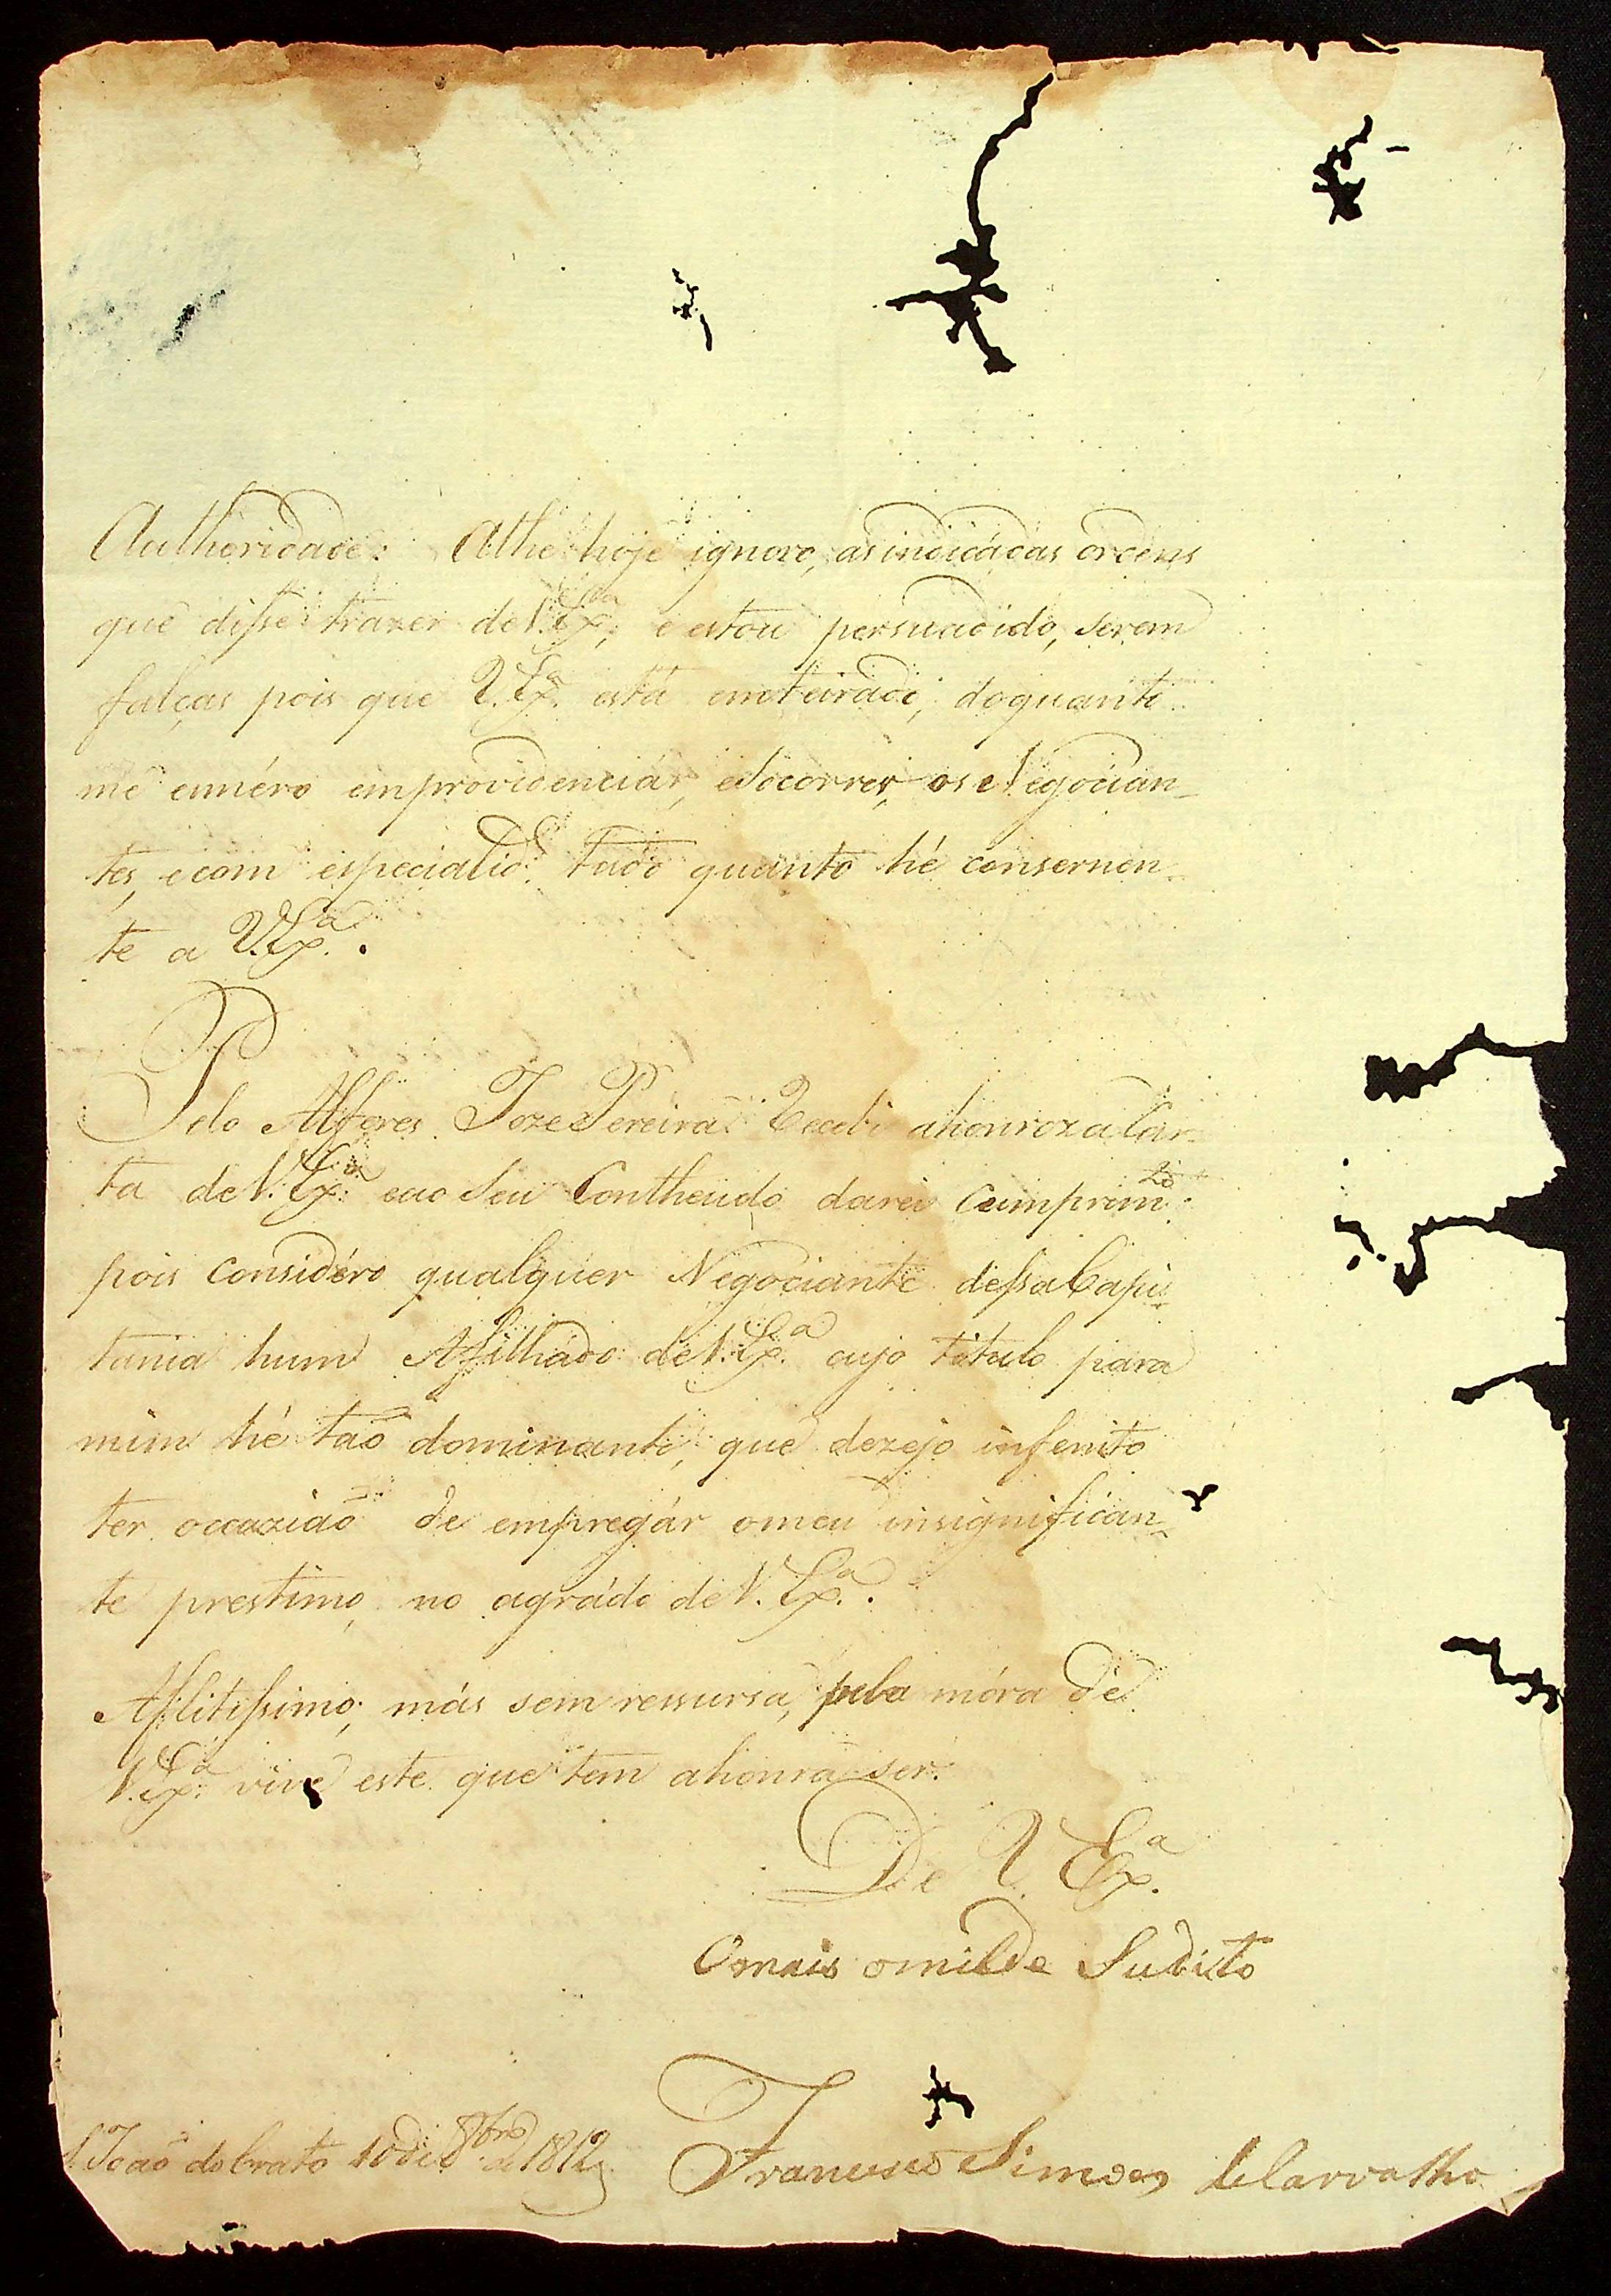 Authoridade: Athe hoje ignoro, as indicádas ordens
que disse trazer de V. Exa, e estou persuadido, serem
falças pois que V. Exa está emteirado, doquanto
me esméro emprovidenciár, eSocorrer, os Negocian-
tes, ecom especialide tudo quanto hé consernen-
te a V. Exa.
Pelo Alferes Joze Pereira Recebi ahonroza Car-
ta de V. Exa eao Seu Contheudo darei Cumprimto
pois Considéro qualquer Negociante dessa Capi-
tania hum Afilhádo de V. Exa cujo titulo para
mim hé taõ dominante, que dezejo infenito
ter occaziaõ de empregár omeu insignifican-
te prestimo, no agrádo de V. Exa.
Aflitissimo, más sem ressursa, pela móra de
V. Exa vive este que tem ahonra ser.
De V. Exa
Omais omilde Sudito
S. Joaõ do Crato 10 de 8bro de 1812 Francisco Simoes de Carvalho